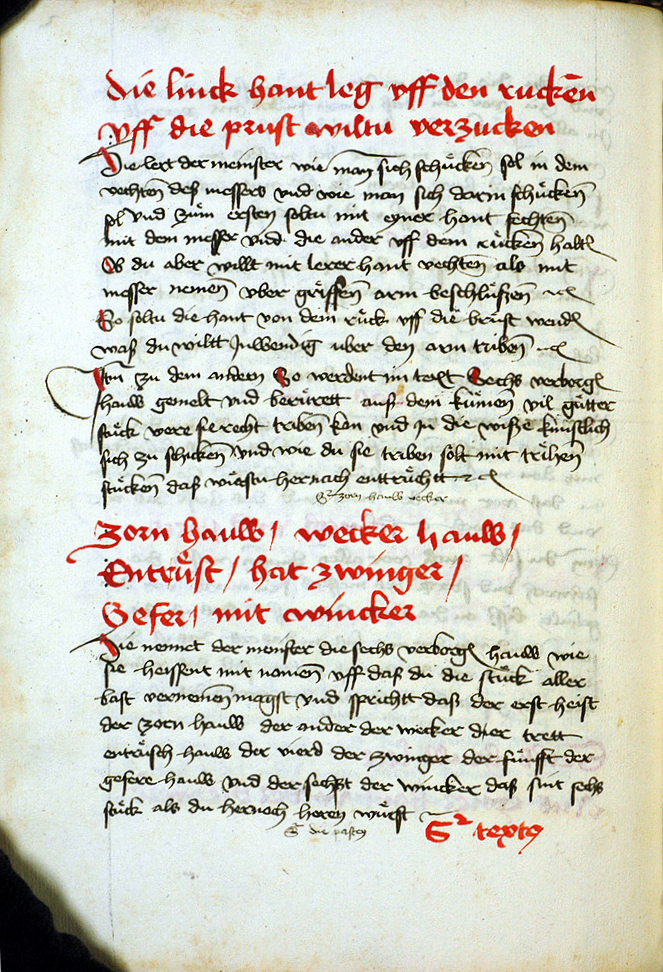 Die linck hant leg vff den rucken
vff die prust wiltu verzucken
Hie lert der meinster wie man sich schücken sol in dem
vechten deß messers vnd wie man sich darin schücken
sol vnd züm ersten soltu mit eyner hant fechten
mit dem messer vnd die ander vff dem rücken halt
Ob du aber willt mit lerer hant vechten als mit
messer nemen vber griffen arm beschlüßzen etc
So soltu die hant von dem rück vff die brüst wend
waß du wiltt Inwendig uber den arm triben etc
Itm zu dem andern So werdent im text Sechs verborg
hauw gemelt vnd berürett auß dem kümen vil gütter
stück were sie recht triben kan vnd jn die wisße künstlich
sich zu schicken vnd wie du sie triben solt mit trihen
stücken daß würstu hernach enttrüchtt etc
zorn hauw wecker
Zorn hauw / wecker hauw /
Entrüst / hat zwinger /
Gefer / mit wincker
Hie nennet der meinster die sechs verborg hauw wie
sie heissent mit nomen vff daß du die stück aller
bast vernemen magst vnd sprichtt daß der erst heist
der zorn hauw der ander der wecker der trett
entrüsch hauw der vierd der zwinger der fünfft der
gefere hauw vnd der sechst der wincker daß sint sechs
stück als du hernoch horen würst
textus